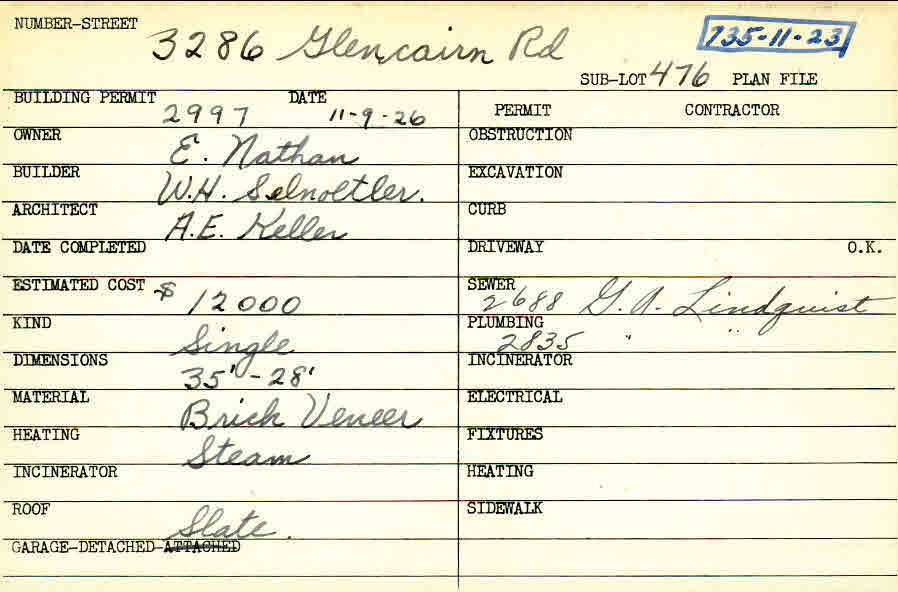 NUMBER-STREET 3286 Glencairn Rd 735-11-23
SUB-LOT 476 PLAN FILE
BUILDING PERMIT 2997 DATE 11-9-26
OWNER E. Nathan
BUILDER W.H.
ARCHITECT A.E. Keller
DATE COMPLETED
ESTIMATED COST $12000
KIND Single
DIMENSIONS 35'-28'
MATERIAL Brick Veneer
HEATING Steam
INCINERATOR
ROOF Slate.
GARAGE-DETACHED-ATTACHED
PERMIT CONTRACTOR
OBSTRUCTION
EXCAVATION
CURB
DRIVEWAY O.K.
SEWER 2688 G.A. Lindquist
PLUMBING 2835 " "
INCINERATOR
ELECTRICAL
FIXTURES
HEATING
SIDEWALK